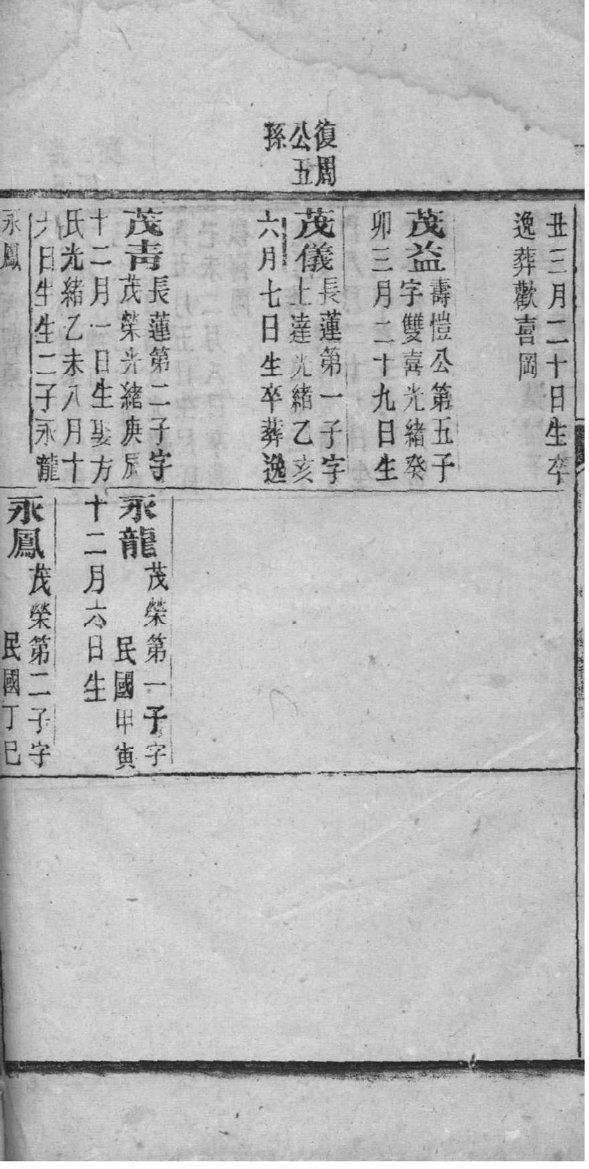 復周
公五
孫
丑三月二十日生卒
逸葬歡喜岡
茂益
壽愷公第五子
字雙喜光緒癸
卯三月二十九日生
茂儀
長蓮第一子字
上達光緒乙亥
六月七日生卒葬逸
茂青
長蓮第二子字
茂榮光緒庚辰
十二月一日生娶方
氏光緒乙未八月十
六日生生二子永龍
永鳳
永龍
茂榮第一子字
民國甲寅
十二月六日生
永鳳
茂榮第二子字
民國丁巳